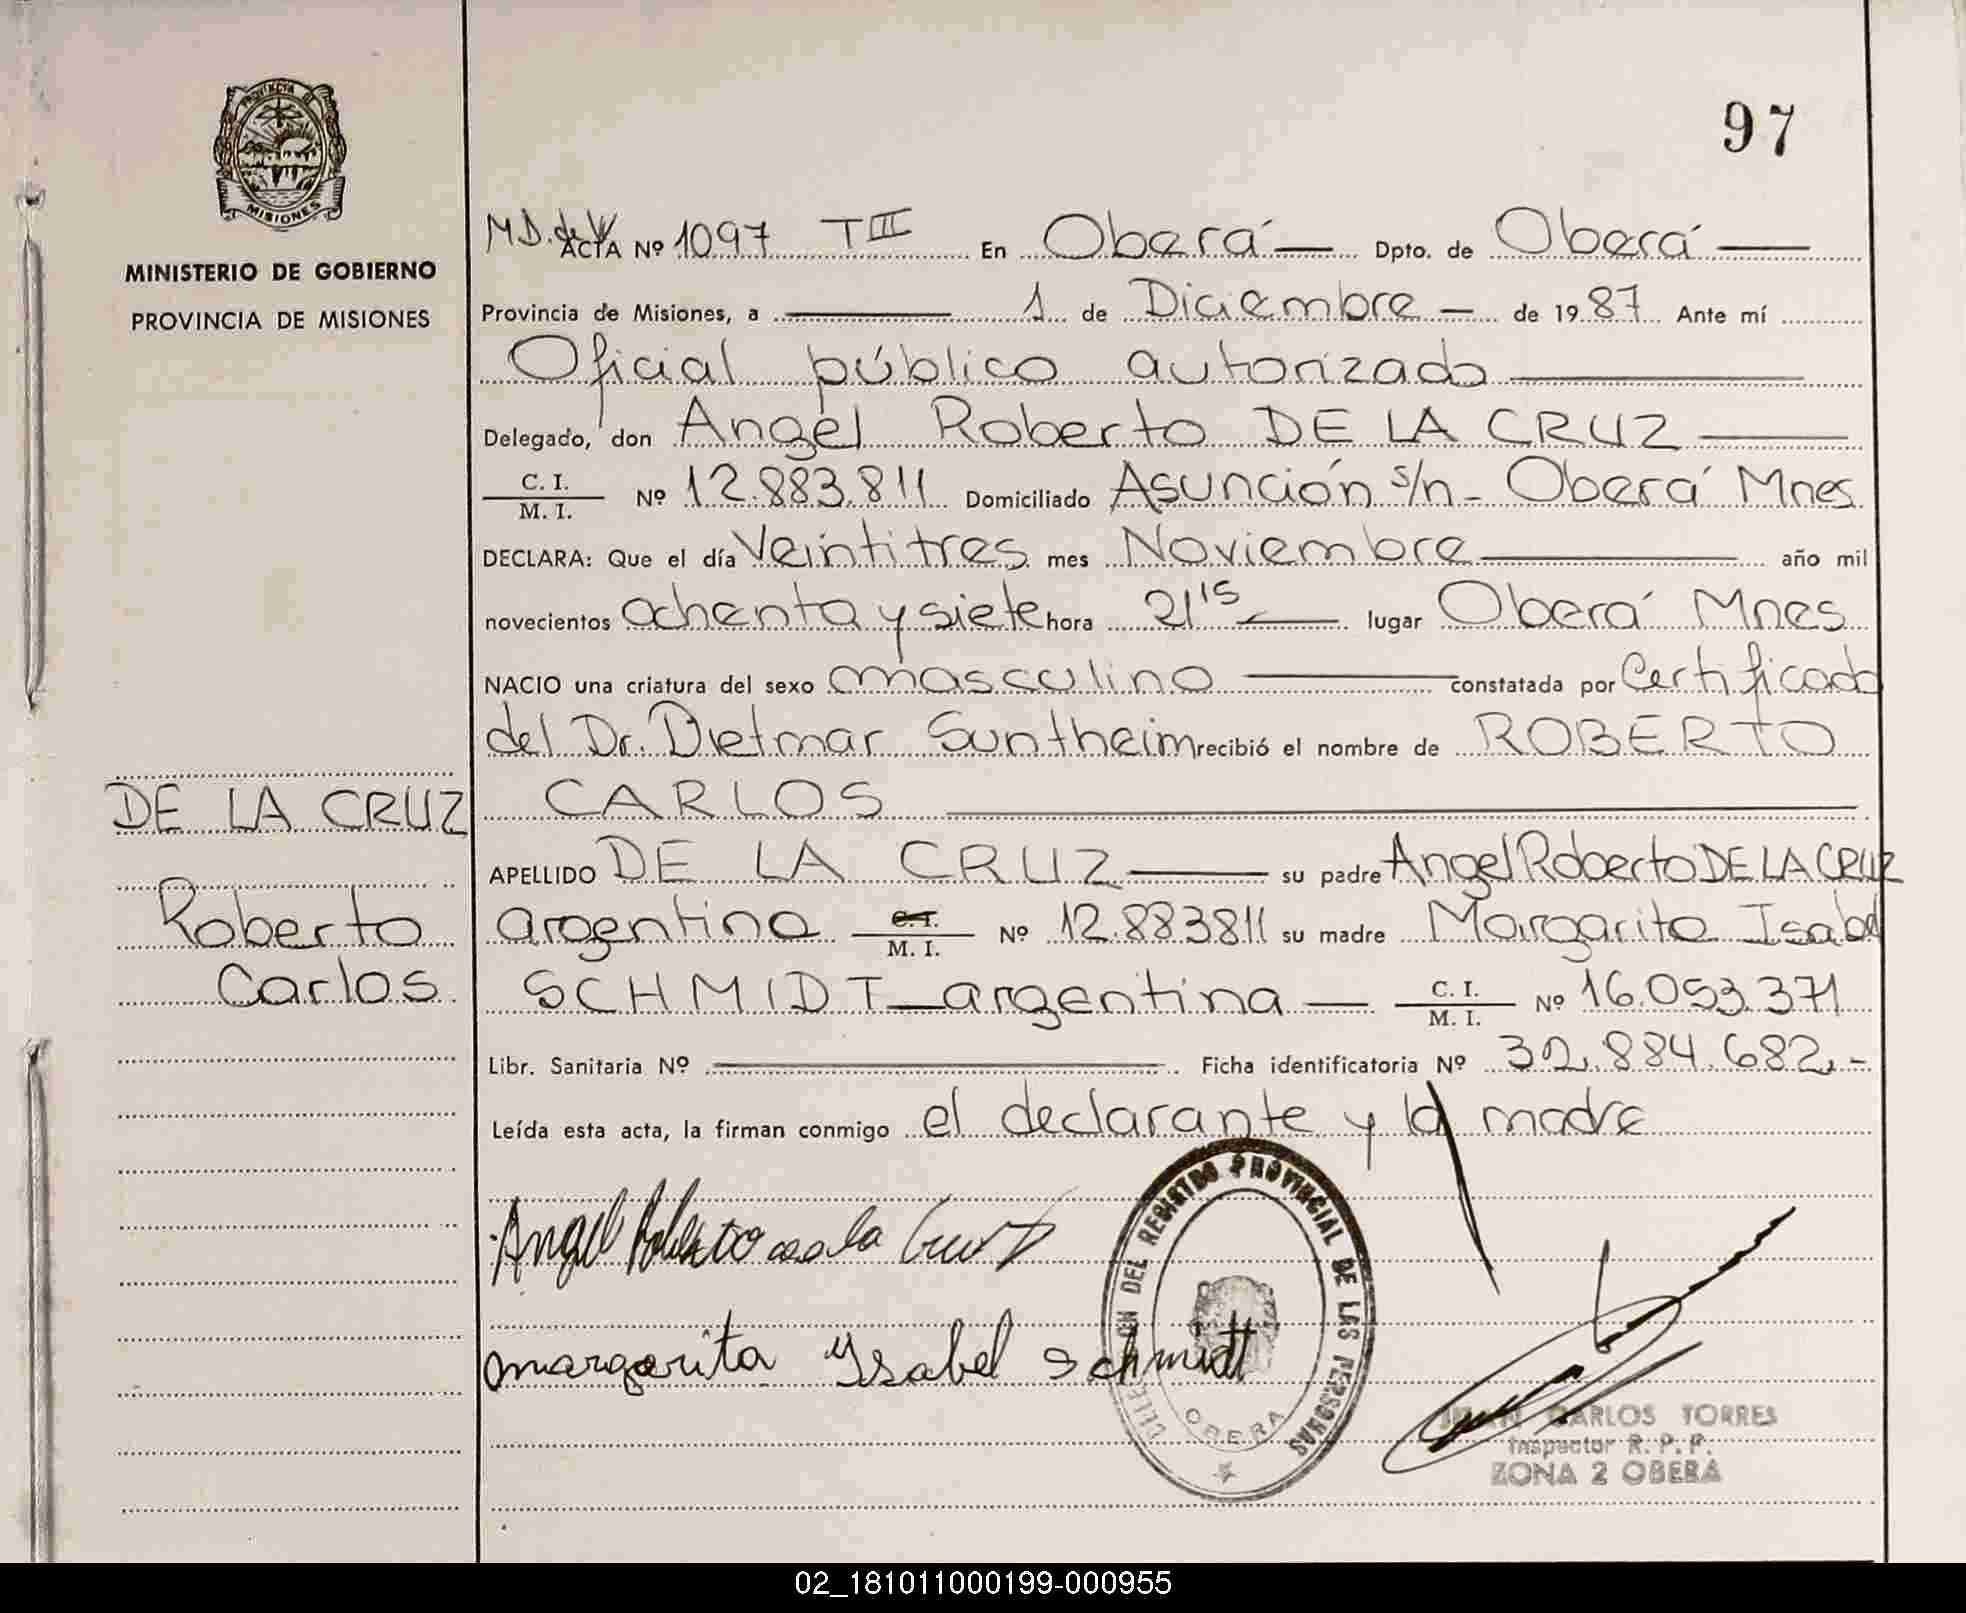 PROVINCIA DE
MISIONES
MINISTERIO DE GOBIERNO
PROVINCIA DE MISIONES
97
ACTA Nº 1097 TIII En Oberá Dpto. de Oberá
Provincia de Misiones, a 1 de Diciembre de 1987 Ante mí
Oficial público autorizado
Delegado, don Angel Roberto DE LA CRUZ
C. I. / M. I. Nº 12.883.811 Domiciliado Asunción s/n - Oberá Mnes
DECLARA: Que el día Veintitres mes Noviembre año mil
novecientos ochenta y siete hora 21 15 lugar Oberá Mnes
NACIO una criatura del sexo masculino constatada por Certificado
del Dr. Dietmar Suntheim recibió el nombre de ROBERTO
CARLOS
APELLIDO DE LA CRUZ su padre Angel Roberto DE LA CRUZ
argentino C. I. / M. I. Nº 12.883811 su madre Margarita Isabel
SCHMIDT argentina C. I. / M. I. Nº 16.053.371
Libr. Sanitaria Nº Ficha identificatoria Nº 32.884.682.-
Leída esta acta, la firman conmigo el declarante y la madre
DE LA CRUZ
Roberto
Carlos
Angel Roberto de la Cruz
margarita Ysabel Schmidt
DEL REGISTRO PROVINCIAL DE LAS PERSONAS
OBERA
JUAN CARLOS TORRES
Inspector R. P. P.
ZONA 2 OBERA
02_181011000199-000955